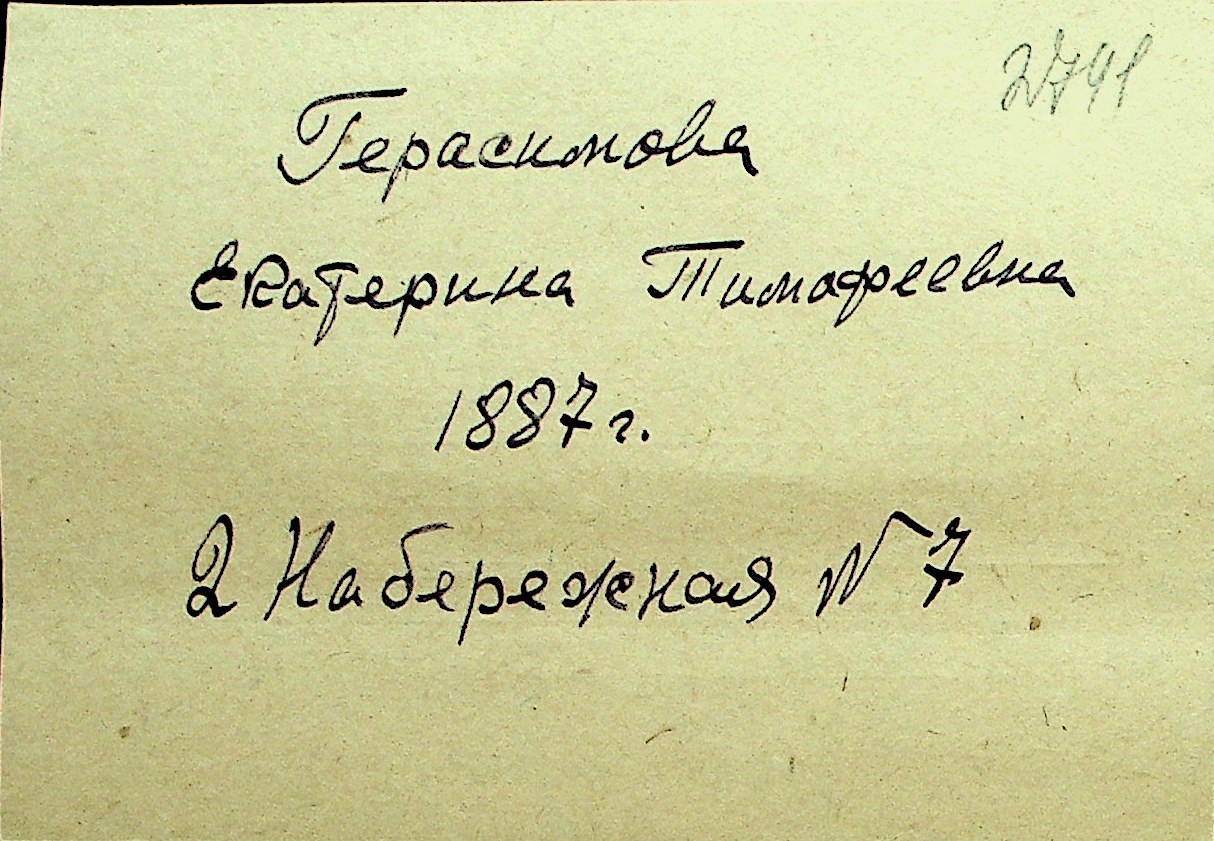 2741
Герасимова
Екатерина Тимофеевна
1887 г.
2 Набережная N 7